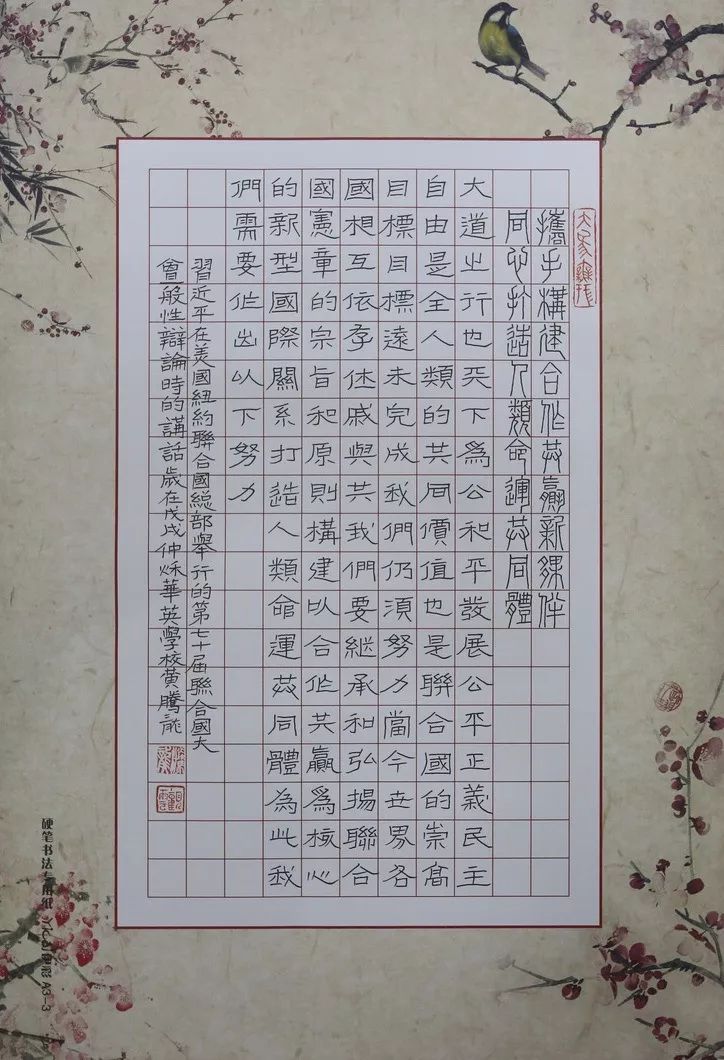 攜手構建合作共贏新夥伴
同心打造人類命運共同體
大道之行也天下為公和平發展公平正義民主
自由是全人類的共同價值也是聯合國的崇高
目標目標遠未完成我們仍須努力當今世界各
國相互依存休戚與共我們要繼承和弘揚聯合
國憲章的宗旨和原則構建以合作共贏為核心
的新型國際關系打造人類命運共同體為此我
們需要作出以下努力
習近平在美國紐約聯合國總部舉行的第七十届聯合國大
會一般性辯論時的講話歲在戊戌仲秋華英學校黃騰龍
硬笔书法专用纸
A3-3